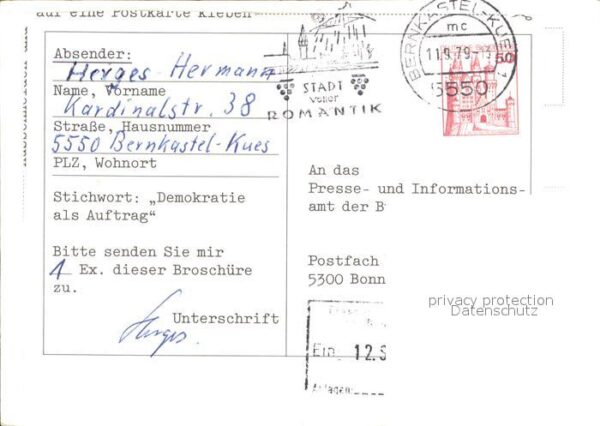 auf eine Postkarte kleben
Absender:
Herges Hermann
Name, Vorname
Kardinalstr. 38
Straße, Hausnummer
5550 Bernkastel-Kues
PLZ, Wohnort
Stichwort: „Demokratie
als Auftrag“
Bitte senden Sie mir
1 Ex. dieser Broschüre
zu.
Unterschrift
Herges
STADT
voller
ROMANTIK
BERNKASTEL-KUES
mc
11.9.79
5550
50
An das
Presse- und Informations-
amt der B
Postfach
5300 Bonn
privacy protection
Datenschutz
Ein 12.S
Anlagen: